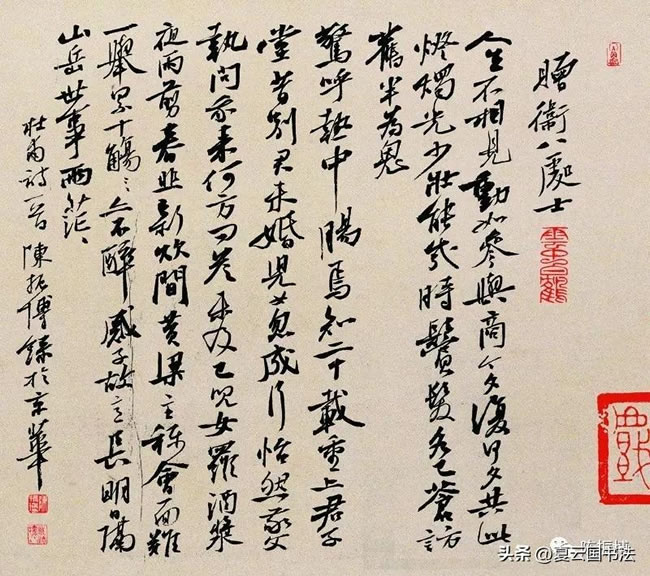 贈衞八處士
人生不相見動如參與商今夕復何夕共此
燈燭光少壯能幾時鬢髮各已蒼訪
舊半為鬼
驚呼熱中腸焉知二十載重上君子
堂昔別君未婚兒女忽成行怡然敬父
執問我來何方問答未及已兒女羅酒漿
夜雨剪春韭新炊間黄粱主稱會面難
一舉累十觴〻亦不醉感子故意長明日隔
山岳世事兩茫〻
杜甫詩一首陳振博錄於京華
头条@夏云国书法